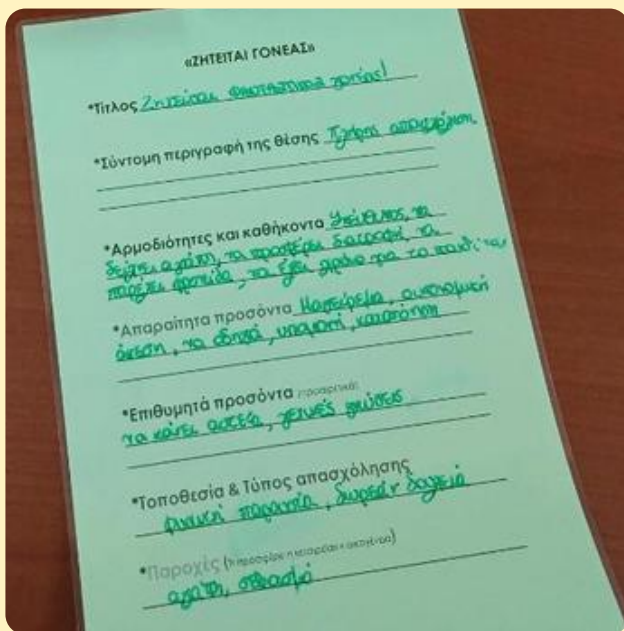 «ΖΗΤΕΙΤΑΙ ΓΟΝΕΑΣ»
*Τίτλος Ζητείται φανταστικός γονέας!
*Σύντομη περιγραφή της θέσης Πλήρης απασχόληση
*Αρμοδιότητες και καθήκοντα Υπεύθυνος, να
δείχνει αγάπη, να προσφέρει διατροφή, να
παρέχει φροντίδα, να έχει χρόνο για το παιδί του
*Απαραίτητα προσόντα Μαγειρεία, οικονομική
άνεση, να οδηγεί, υπομονή, κατανόηση
*Επιθυμητά προσόντα (προαιρετικά)
να κάνει αστεία, γενικές γνώσεις
*Τοποθεσία & Τύπος απασχόλησης
φυσική παρουσία, δωρεάν δουλειά
*Παροχές (τι προσφέρει η εταιρεία/η οικογένεια)
αγάπη, σεβασμό